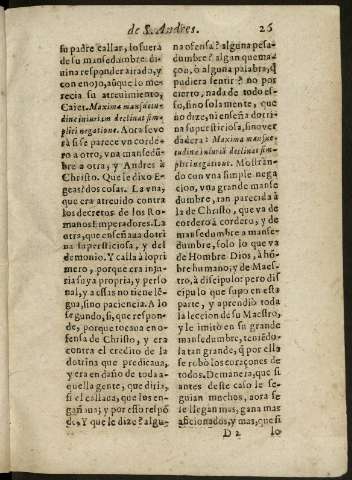 de S. Andres. 26
su padre callar, lo fuera
de su mansedumbre diuina
responder airado, y
con enojo, aũque lo merecia
su atreuimiento,
Caiet. Maxima mansuetudine
iniurium declinat simplici
negatione. Aora se verà
si se parece vn cordero
a otro, vna mansedũbre
a otra, y Andres à
Christo. Que le dixo Egeas?
dos cosas. La vna,
que era atreuido contra
los decretos de los Romanos
Emperadores. La
otra, que enseñaua dotrina
supersticiosa, y del
demonio. Y calla à lo primero,
porque era injuria
suya propria, y personal,
y a essas no tiene lẽgua,
sino paciencia. A lo
segundo, si, que responde,
porque tocaua en ofensa
de Christo, y era
contra el credito de la
dotrina que predicaua,
y era en daño de toda aquella
gente, que diria,
si el callaua, que los engañaua;
y por esto respõde.
Y que le dize? alguna
ofensa? alguna pesadumbre?
algan quemaçon,
ò alguna palabra, q̃
pudiera sentir? no por
cierto, nada de todo esso,
sino solamente, que
no dize, ni enseña dotrina
supersticiosa, sino verdadera:
Maxima mansuetudine
iniurii declinat simplici
negationet. Mostrando
con vna simple negacion,
vna grande mansedumbre,
tan parecida à
la de Christo, que va de
cordero à cordero, y de
mansedumbre a mansedumbre,
solo lo que va
de Hombre Dios, à hõbre
humano; y de Maestro,
à discipulo: pero discipulo
que supo en esta
parte, y aprendiò toda
la leccion de su Maestro,
y le imitò en su grande
mansedumbre, teniẽdola
tan grande, q̃ por ella
se robò los coraçones de
todos. De manera, que si
antes deste caso le seguian
muchos, aora se
le llegan mas, gana mas
aficionados, y mas, que si
D 2 lo